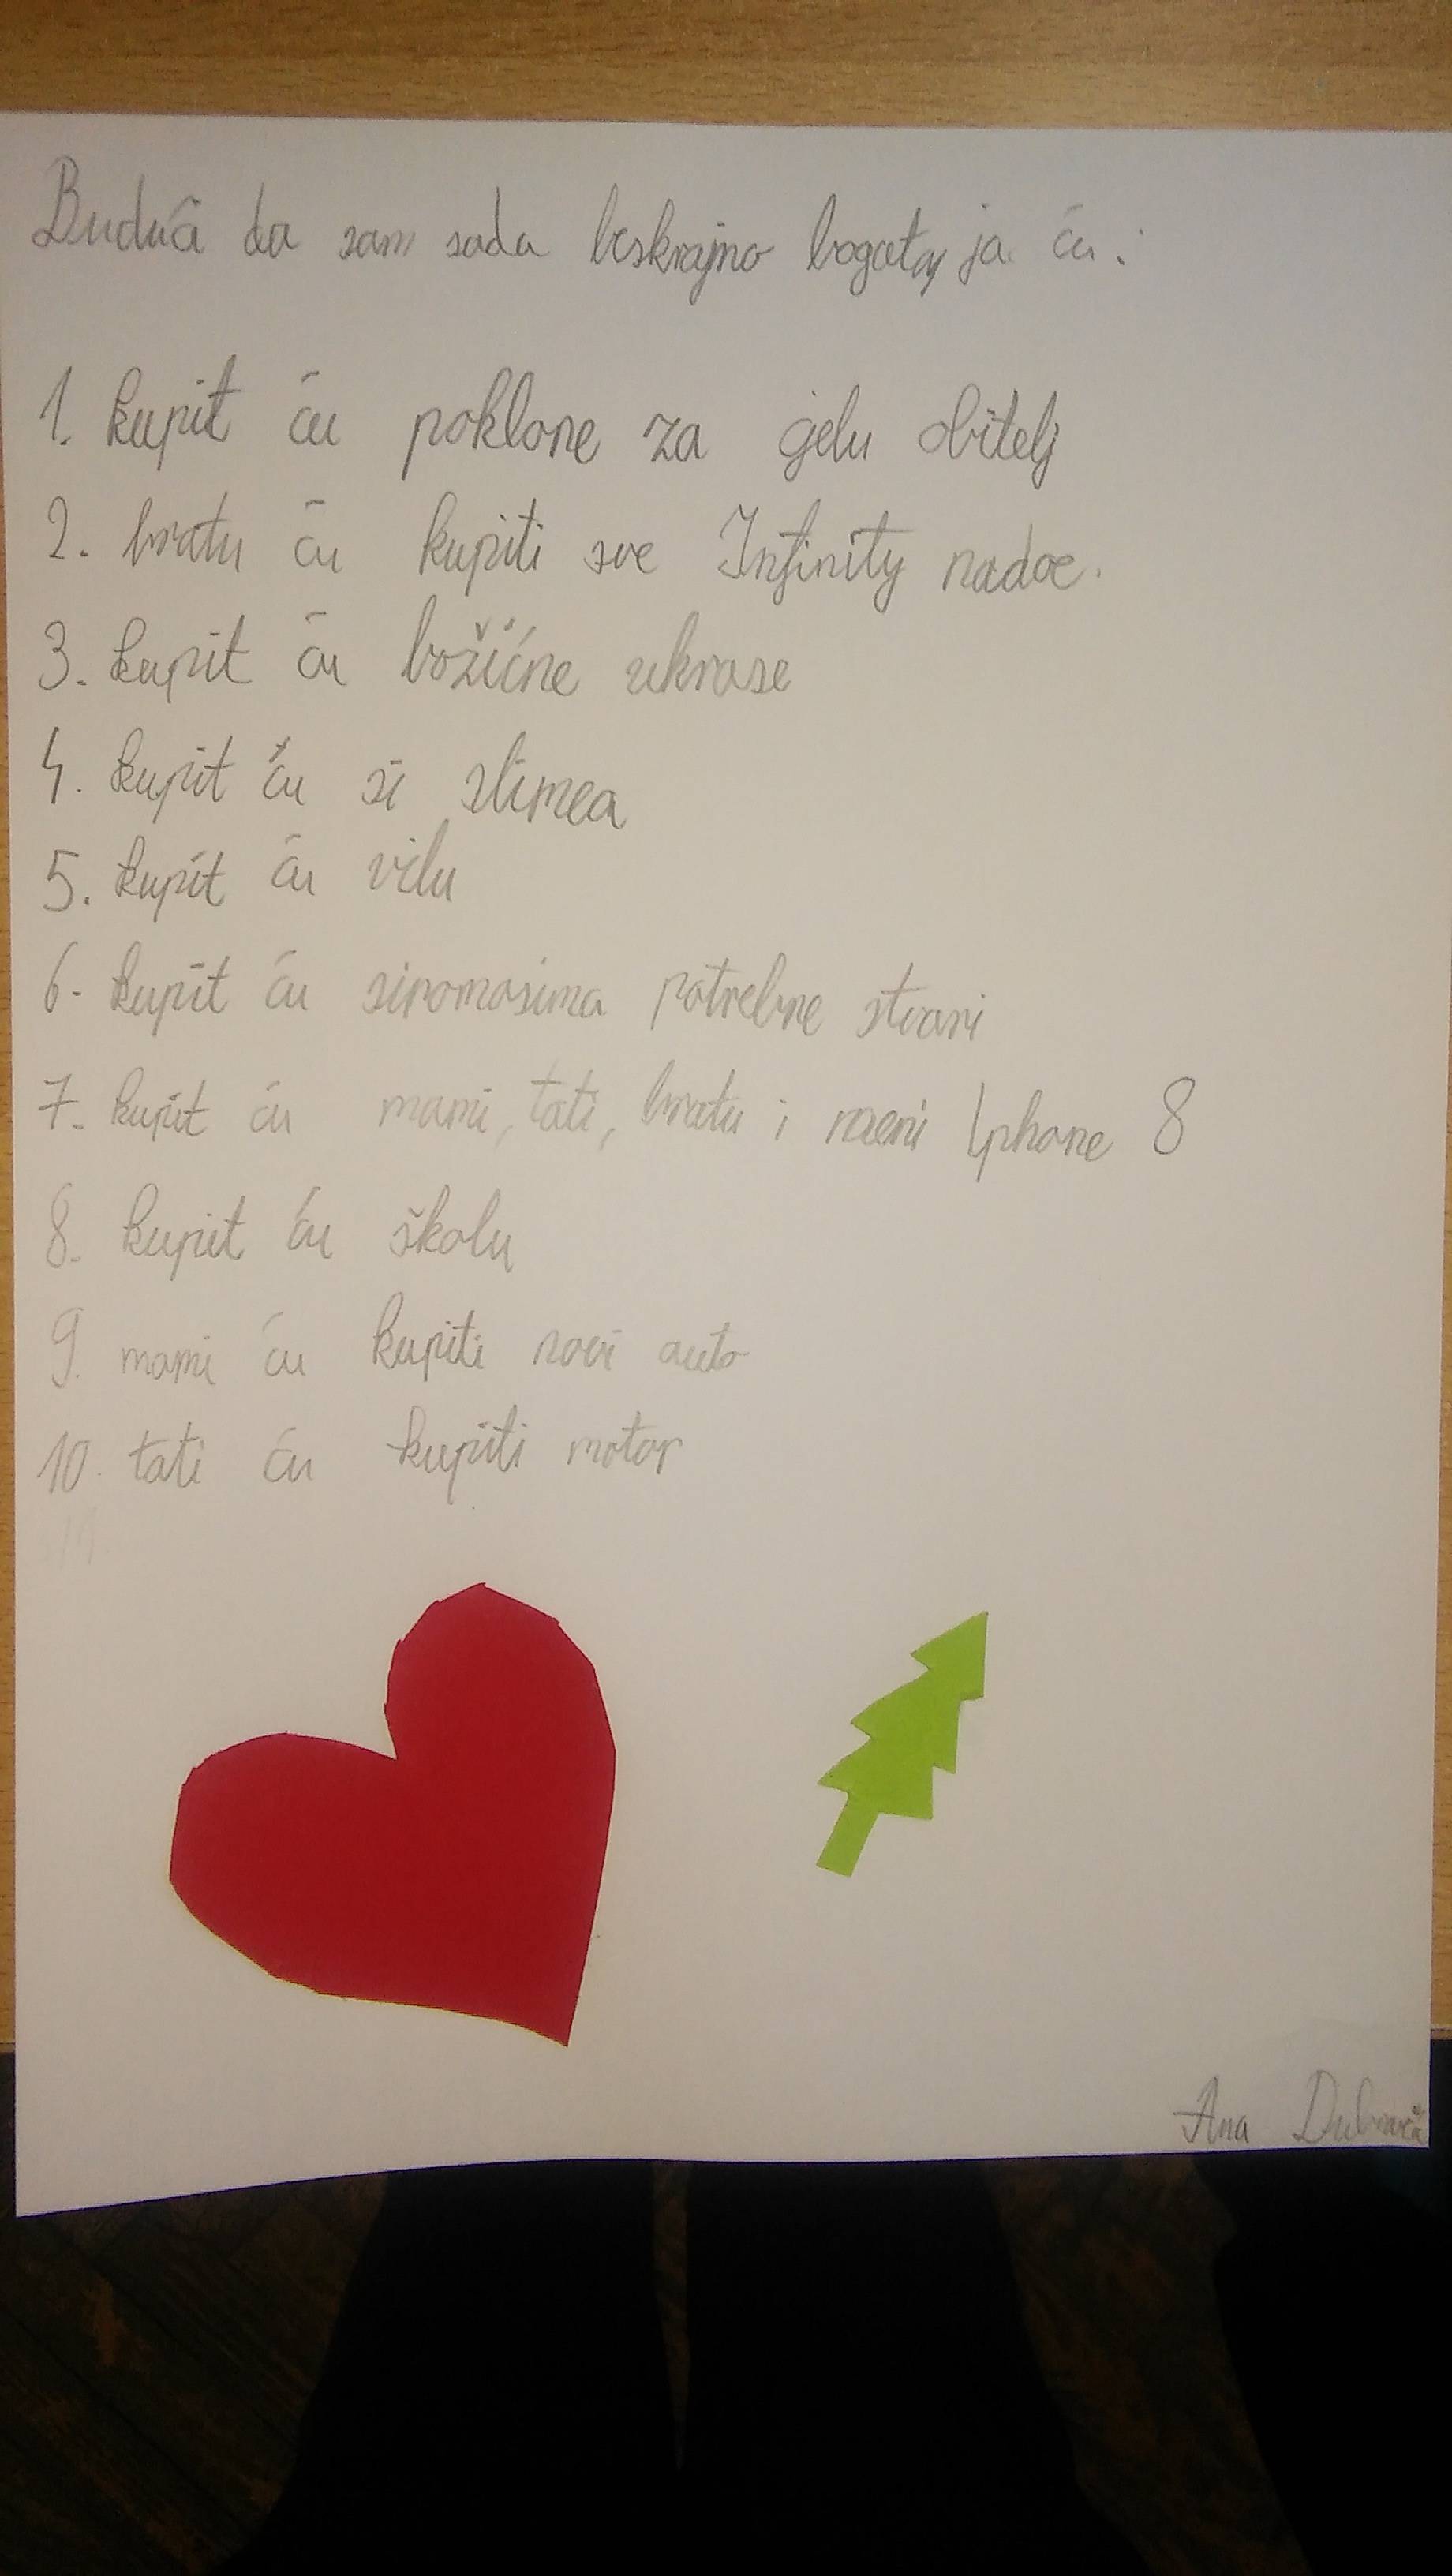 Budući da sam sada beskrajno bogata, ja ću:
1. kupit ću poklone za cjelu obitelj
2. bratu ću kupiti sve Infinity nadoe.
3. kupit ću božićne ukrase
4. kupit ću si slimea
5. kupit ću vilu
6. kupit ću siromasima potrebne stvari
7. kupit ću mami, tati, bratu i meni Iphone 8
8. kupit ću školu
9. mami ću kupiti novi auto
10. tati ću kupiti motor
Ana